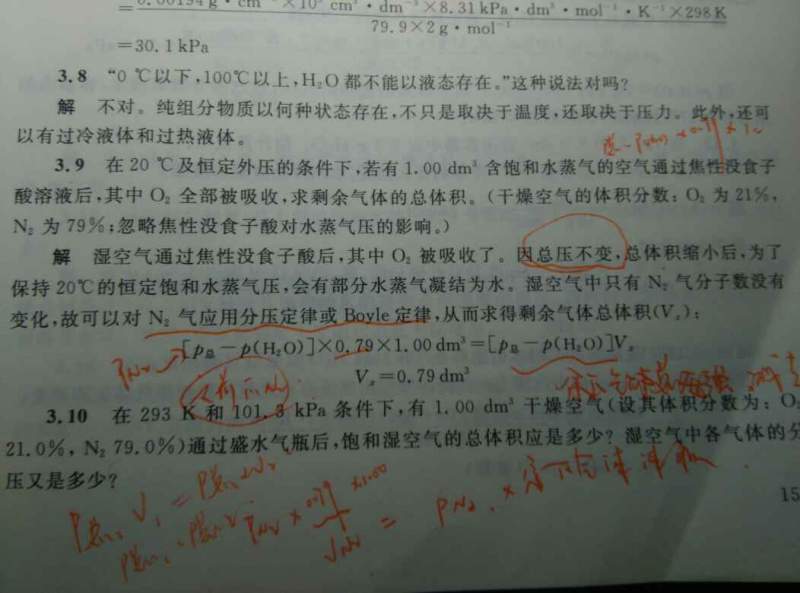 = 0.00194 g·cm⁻³×10³ cm³·dm⁻³×8.31 kPa·dm³·mol⁻¹·K⁻¹×298 K
79.9×2 g·mol⁻¹
=30.1 kPa
3.8 “0 ℃以下,100℃以上,H₂O 都不能以液态存在。”这种说法对吗?
解 不对。纯组分物质以何种状态存在,不只是取决于温度,还取决于压力。此外,还可
以有过冷液体和过热液体。
3.9 在 20 ℃及恒定外压的条件下,若有 1.00 dm³ 含饱和水蒸气的空气通过焦性没食子
酸溶液后,其中 O₂ 全部被吸收,求剩余气体的总体积。(干燥空气的体积分数:O₂ 为 21%,
N₂ 为 79%;忽略焦性没食子酸对水蒸气压的影响。)
解 湿空气通过焦性没食子酸后,其中 O₂ 被吸收了。因总压不变,总体积缩小后,为了
保持 20℃的恒定饱和水蒸气压,会有部分水蒸气凝结为水。湿空气中只有 N₂ 气分子数没有
变化,故可以对 N₂ 气应用分压定律或 Boyle 定律,从而求得剩余气体总体积(Vₓ):
[p总－p(H₂O)]×0.79×1.00 dm³=[p总－p(H₂O)]Vₓ
PN₂
Vₓ=0.79 dm³
3.10 在 293 K 和 101.3 kPa 条件下,有 1.00 dm³ 干燥空气(设其体积分数为:O₂
21.0%,N₂ 79.0%)通过盛水气瓶后,饱和湿空气的总体积应是多少?湿空气中各气体的分
压又是多少?
15